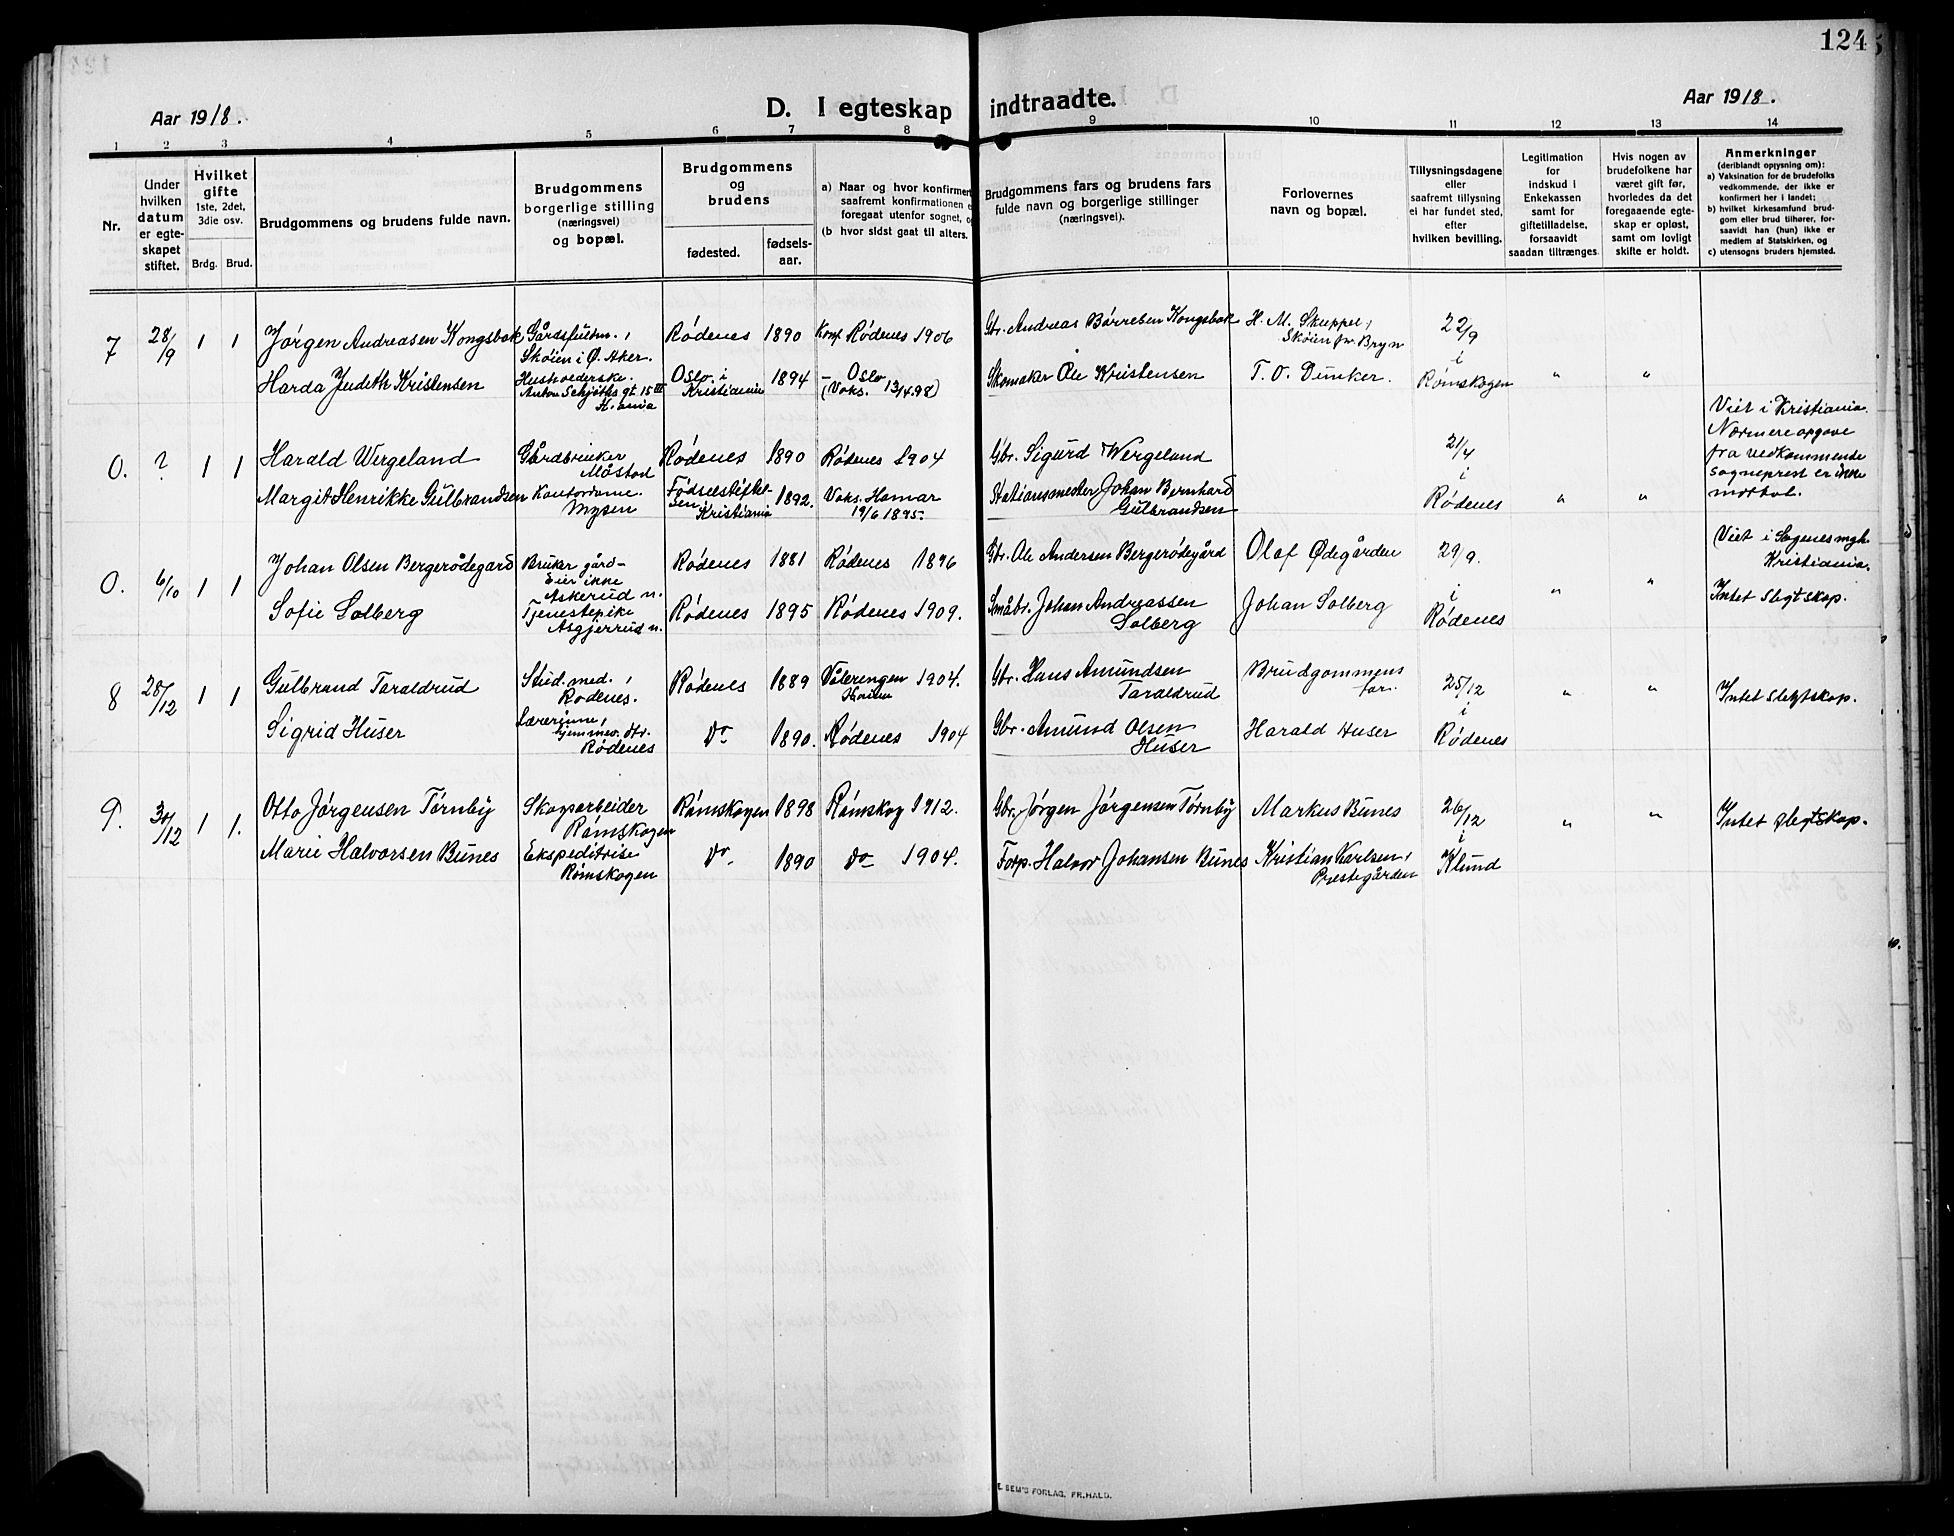 124
Aar 1918.
D. I egteskap indtraadte.
Aar 1918.
1 2 3 4 5 6 7 8 9 10 11 12 13 14
Nr.
Under hvilken datum er egteskapet stiftet.
Hvilket gifte 1ste, 2det, 3die osv.
Brdg. Brud.
Brudgommens og brudens fulde navn.
Brudgommens borgerlige stilling (næringsvei) og bopæl.
Brudgommens og brudens
fødested.
fødselsaar.
a) Naar og hvor konfirmert saafremt konfirmationen foregaat utenfor sognet,
(b hvor sidst gaat til alters.
Brudgommens fars og brudens fars fulde navn og borgerlige stillinger (næringsvei).
Forlovernes navn og bopæl.
Tillysningsdagene eller saafremt tillysning ei har fundet sted, efter hvilken bevilling.
Legitimation for indskud i Enkekassen samt for giftetilladelse, forsaavidt saadan tiltrænges
Hvis nogen av brudefolkene har været gift før, hvorledes da det foregaaende egteskap er opløst, samt om lovligt skifte er holdt.
Anmerkninger
(deriblandt opysning om):
a) Vaksination for de brudefolks vedkommende, der ikke er konfirmert her i landet;
b) hvilket kirkesamfund brudgom eller brud tilhører, forsaavidt han (hun) ikke er medlem af Statskirken, og
c) utensogns bruders hjemsted.
7 28/9 1 1 Jørgen Andreasen Kongsbok Gårdsfuldm., Skøien i Ø. Aker. Rødenes 1890 Konf Rødenes 1906 Gbr. Andreas Børresen Kongsbok H. M. Skuppel, Skøien pr. Bryn 22/9
Harda Judith Kristensen Husholderske. Anton Schjøths gt. 15 III K.ania Oslo i Kristiania 1894 – Oslo (Vaks. 13/4.98) Skomaker Ole Kristensen T. O. Dunker. i Rømskogen " "
0. ? 1 1 Harald Wergeland Gårdbruker Måstad Rødenes 1890 Rødenes 1904 Gbr. Sigurd Wergeland 21/4
Margit Henrikke Gulbrandsen Kontordame. Mysen Fødselsstiftelsen i Kristiania 1892. Vaks. Hamar 19/6 1895. Stationsmester Johan Bernhard Gulbrandsen i Rødenes " "
Viet i Kristiania.
Nærmere opgave
fra vedkommende
sogneprest er ikke
mottat.
0. 6/10 1 1 Johan Olsen Bergerødegard Bruker gård – Eier ikke Askerud n. Rødenes 1881 Rødenes 1896 Gbr. Ole Andersen Bergerødegård Olaf Ødegården 29/9.
Sofie Solberg Tjenestepike Asgjerrud n. Rødenes 1895 Rødenes 1909. Småbr. Johan Andreassen Solberg Johan Solberg i Rødenes " "
Viet i Sagenes mgh.
Kristiania.
Intet slegtskap.
8 28/12 1 1 Gulbrand Taraldrud Stud. med., Rødenes. Rødenes 1889 Vålerengen 1904. Gbr. Hans Amundsen Taraldrud Brudgommens far. 25/12 " " Intet slegtskap.
Sigrid Huser Lærerinne, hjemmev. dtr. Rødenes Do 1890. Rødenes 1904 Gbr. Amund Olsen Huser Harald Huser i Rødenes
9. 12 1 1. Otto Jørgensen Tørnby Skogsarbeider Rømskogen Rømskogen 1898 Rømskog 1912. Gbr. Jørgen Jørgensen Tørnby Markus Bunes 26/12 " " Intet slegtskap.
Marie Halvorsen Bunes Ekspeditrise Rømskogen Do 1890 Do 1904. Forp. Halvor Johansen Bunes Kristian Karlsen, Prestegården i Klund
SEM'S FORLAG, FR.HALD.